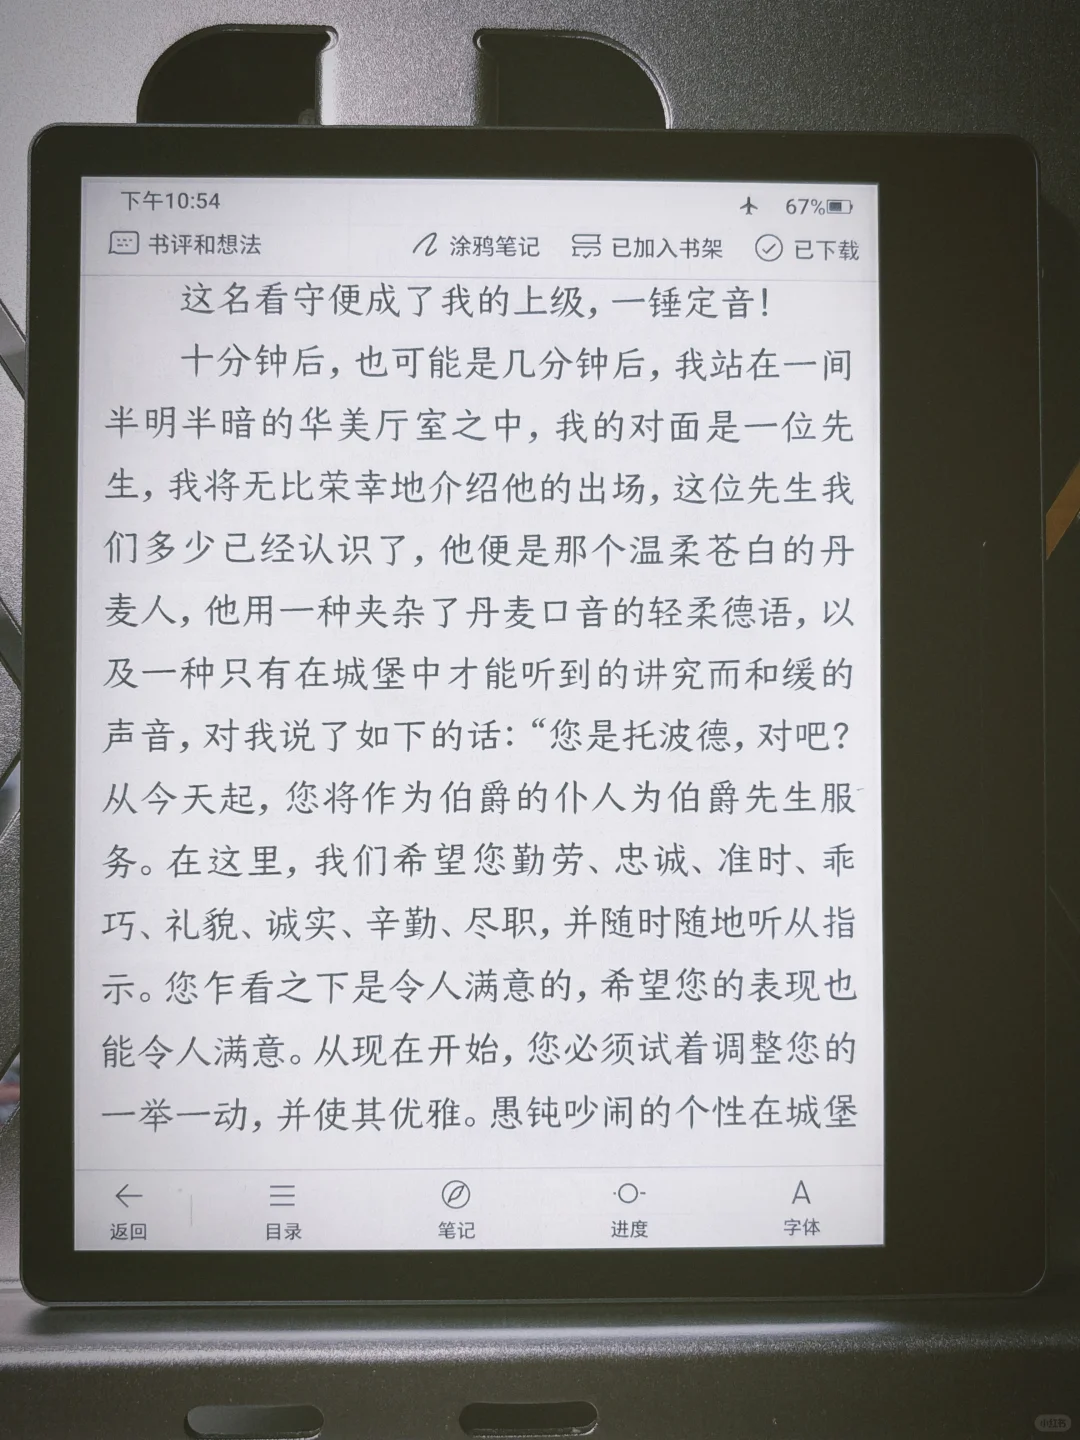 下午10:54
67%
书评和想法
涂鸦笔记
已加入书架
已下载
这名看守便成了我的上级，一锤定音！
十分钟后，也可能是几分钟后，我站在一间
半明半暗的华美厅室之中，我的对面是一位先
生，我将无比荣幸地介绍他的出场，这位先生我
们多少已经认识了，他便是那个温柔苍白的丹
麦人，他用一种夹杂了丹麦口音的轻柔德语，以
及一种只有在城堡中才能听到的讲究而和缓的
声音，对我说了如下的话：“您是托波德，对吧？
从今天起，您将作为伯爵的仆人为伯爵先生服
务。在这里，我们希望您勤劳、忠诚、准时、乖
巧、礼貌、诚实、辛勤、尽职，并随时随地听从指
示。您乍看之下是令人满意的，希望您的表现也
能令人满意。从现在开始，您必须试着调整您的
一举一动，并使其优雅。愚钝吵闹的个性在城堡
返回
目录
笔记
进度
A
字体
小红书